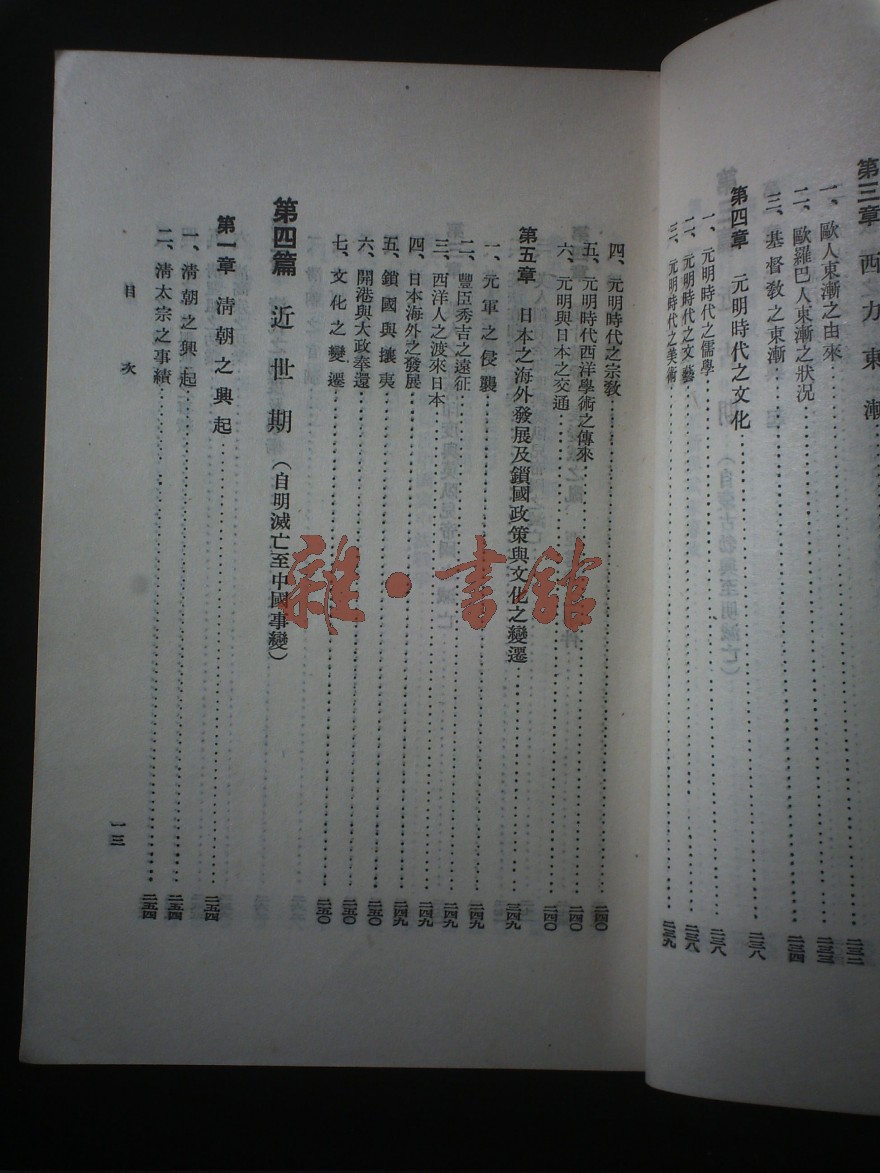 第三章 西力東漸
一、歐人東漸之由來 二三二
二、歐羅巴人東漸之狀況 二三三
三、基督敎之東漸 二三四
第四章 元明時代之文化 二三八
一、元明時代之儒學 二三八
二、元明時代之文藝 二三八
三、元明時代之美術 二三九
四、元明時代之宗敎 二四〇
五、元明時代西洋學術之傳來 二四〇
六、元明與日本之交通 二四〇
第五章 日本之海外發展及鎖國政策與文化之變遷 二四九
一、元軍之侵襲 二四九
二、豐臣秀吉之遠征 二四九
三、西洋人之渡來日本 二四九
四、日本海外之發展 二四九
五、鎖國與攘夷 二五〇
六、開港與大政奉還 二五〇
七、文化之變遷 二五〇
第四篇 近世期（自明滅亡至中國事變）
第一章 淸朝之興起 二五四
一、淸朝之興起 二五四
二、淸太宗之事績 二五四
目次
一三
雜·書館